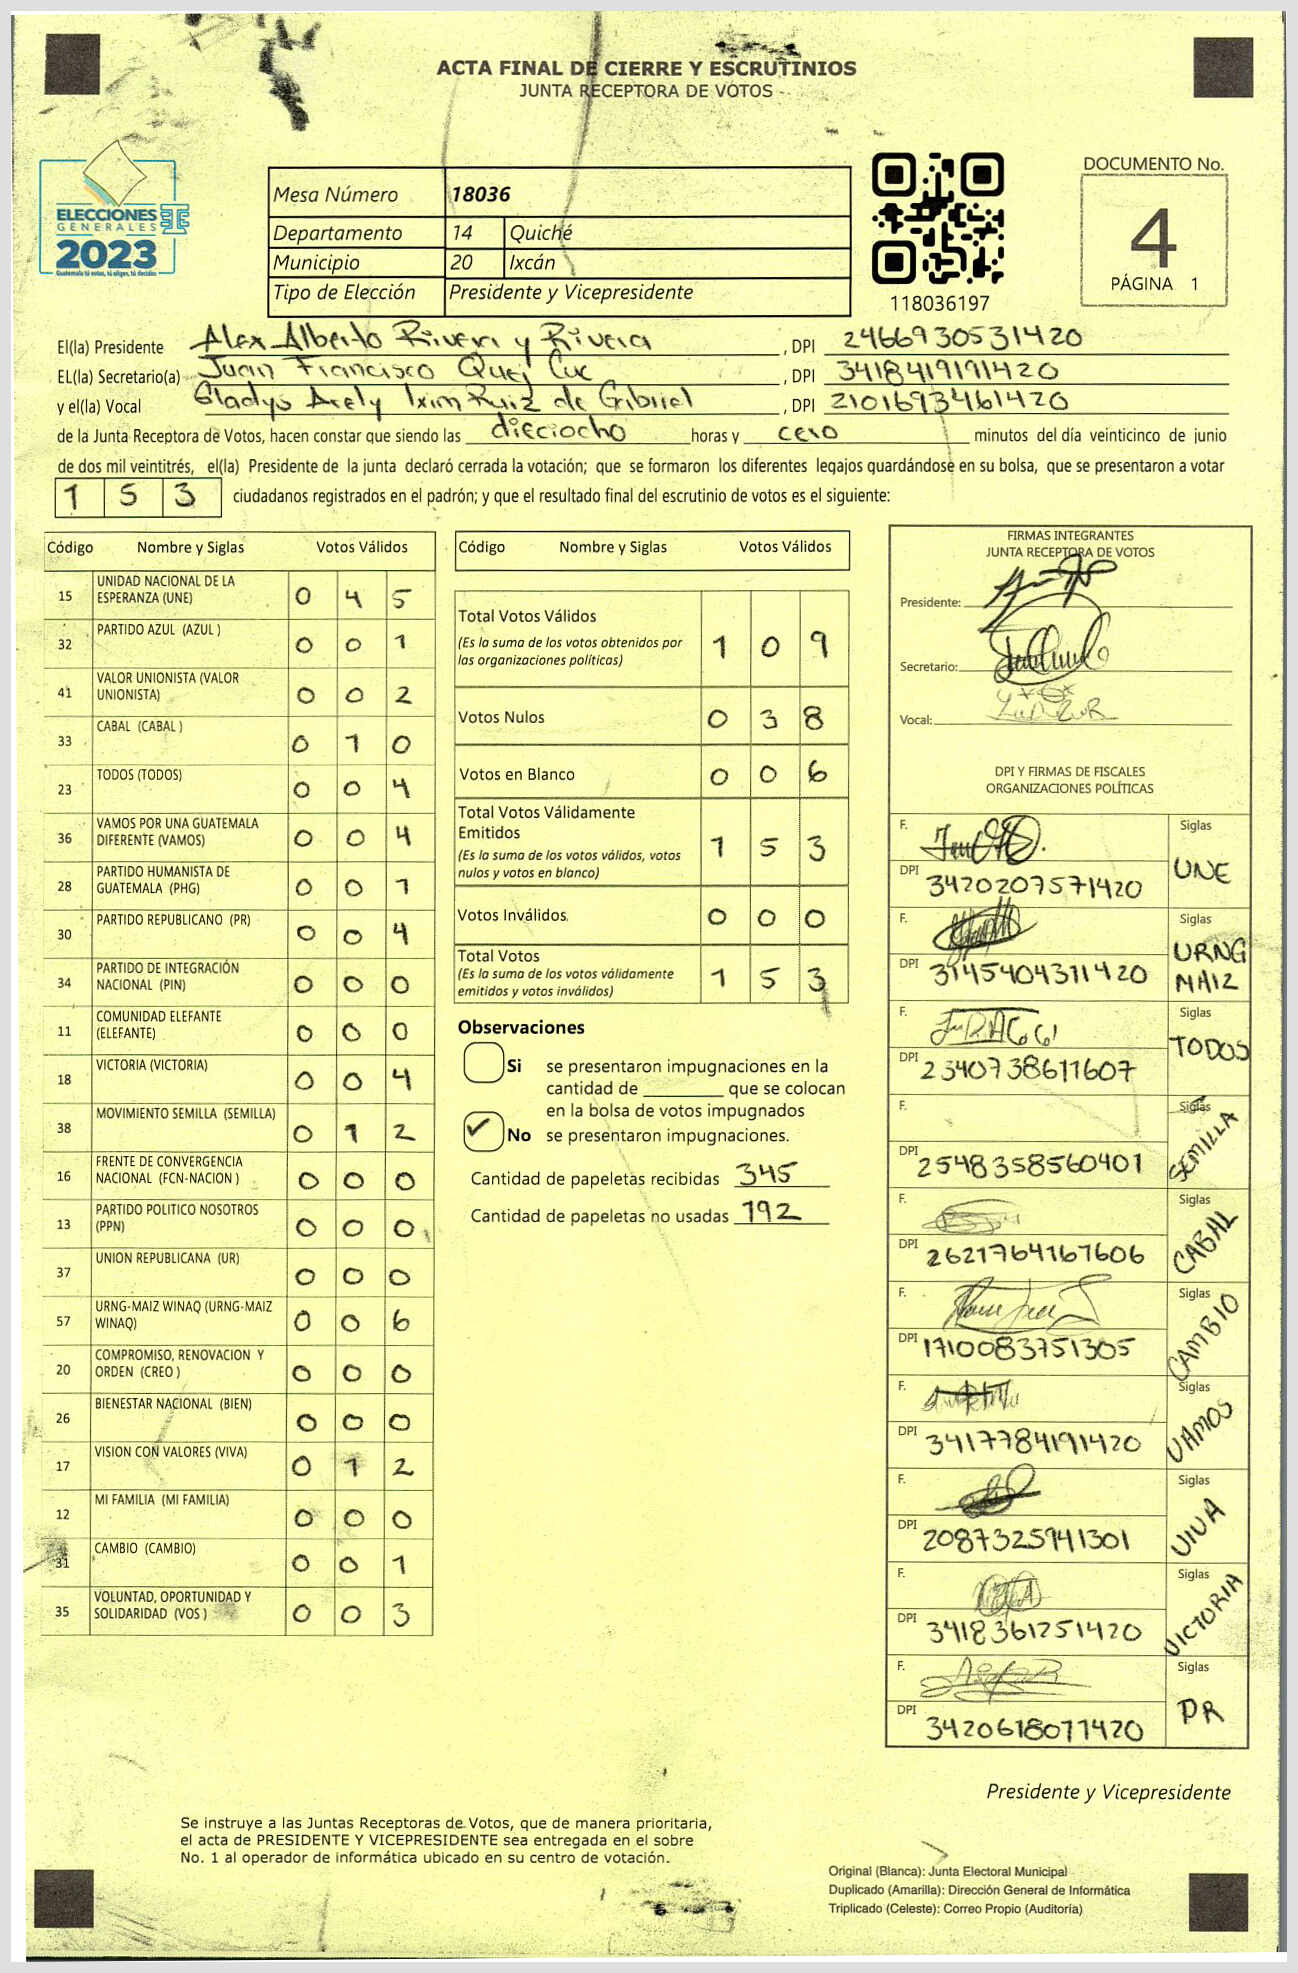 ACTA FINAL DE CIERRE Y ESCRUTINIOS
JUNTA RECEPTORA DE VOTOS
ELECCIONES
GENERALES
2023
Guatemala tú votas, tú eliges, tú decides
Mesa Número 18036
Departamento 14 Quiché
Municipio 20 Ixcán
Tipo de Elección Presidente y Vicepresidente
118036197
DOCUMENTO No.
4
PÁGINA 1
El(la) Presidente Alex Alberto Rivera y Rivera , DPI 2466930531420
EL(la) Secretario(a) Juan Francisco Quej Cuc , DPI 3418419191420
y el(la) Vocal Gladys Arely Ixim Ruiz de Gibriel , DPI 2101693461420
de la Junta Receptora de Votos, hacen constar que siendo las dieciocho horas y cero minutos del día veinticinco de junio
de dos mil veintitrés, el(la) Presidente de la junta declaró cerrada la votación; que se formaron los diferentes legajos guardándose en su bolsa, que se presentaron a votar
153 ciudadanos registrados en el padrón; y que el resultado final del escrutinio de votos es el siguiente:
Código Nombre y Siglas Votos Válidos
15 UNIDAD NACIONAL DE LA ESPERANZA (UNE) 0 4 5
32 PARTIDO AZUL (AZUL ) 0 0 1
41 VALOR UNIONISTA (VALOR UNIONISTA) 0 0 2
33 CABAL (CABAL ) 0 1 0
23 TODOS (TODOS) 0 0 4
36 VAMOS POR UNA GUATEMALA DIFERENTE (VAMOS) 0 0 4
28 PARTIDO HUMANISTA DE GUATEMALA (PHG) 0 0 1
30 PARTIDO REPUBLICANO (PR) 0 0 4
34 PARTIDO DE INTEGRACIÓN NACIONAL (PIN) 0 0 0
11 COMUNIDAD ELEFANTE (ELEFANTE) 0 0 0
18 VICTORIA (VICTORIA) 0 0 4
38 MOVIMIENTO SEMILLA (SEMILLA) 0 1 2
16 FRENTE DE CONVERGENCIA NACIONAL (FCN-NACION ) 0 0 0
13 PARTIDO POLITICO NOSOTROS (PPN) 0 0 0
37 UNION REPUBLICANA (UR) 0 0 0
57 URNG-MAIZ WINAQ (URNG-MAIZ WINAQ) 0 0 6
20 COMPROMISO, RENOVACION Y ORDEN (CREO ) 0 0 0
26 BIENESTAR NACIONAL (BIEN) 0 0 0
17 VISION CON VALORES (VIVA) 0 1 2
12 MI FAMILIA (MI FAMILIA) 0 0 0
31 CAMBIO (CAMBIO) 0 0 1
35 VOLUNTAD, OPORTUNIDAD Y SOLIDARIDAD (VOS ) 0 0 3
Código Nombre y Siglas Votos Válidos
Total Votos Válidos 1 0 9
(Es la suma de los votos obtenidos por
las organizaciones políticas)
Votos Nulos 0 3 8
Votos en Blanco 0 0 6
Total Votos Válidamente
Emitidos 1 5 3
(Es la suma de los votos válidos, votos
nulos y votos en blanco)
Votos Inválidos 0 0 0
Total Votos 1 5 3
(Es la suma de los votos válidamente
emitidos y votos inválidos)
Observaciones
Si se presentaron impugnaciones en la
cantidad de ________ que se colocan
en la bolsa de votos impugnados
No se presentaron impugnaciones.
Cantidad de papeletas recibidas 345
Cantidad de papeletas no usadas 192
FIRMAS INTEGRANTES
JUNTA RECEPTORA DE VOTOS
Presidente:
Secretario:
Vocal:
DPI Y FIRMAS DE FISCALES
ORGANIZACIONES POLÍTICAS
F. Siglas UNE
DPI 3420207571420
F. Siglas URNG MAIZ
DPI 3145404311420
F. Siglas TODOS
DPI 2340738611607
F. Siglas SEMILLA
DPI 2548358560401
F. Siglas CABAL
DPI 2621764167606
F. Siglas CAMBIO
DPI 1710083751305
F. Siglas VAMOS
DPI 3417784191420
F. Siglas VIVA
DPI 2087325941301
F. Siglas VICTORIA
DPI 3418361251420
F. Siglas PR
DPI 3420618071420
Presidente y Vicepresidente
Se instruye a las Juntas Receptoras de Votos, que de manera prioritaria,
el acta de PRESIDENTE Y VICEPRESIDENTE sea entregada en el sobre
No. 1 al operador de informática ubicado en su centro de votación.
Original (Blanca): Junta Electoral Municipal
Duplicado (Amarilla): Dirección General de Informática
Triplicado (Celeste): Correo Propio (Auditoría)